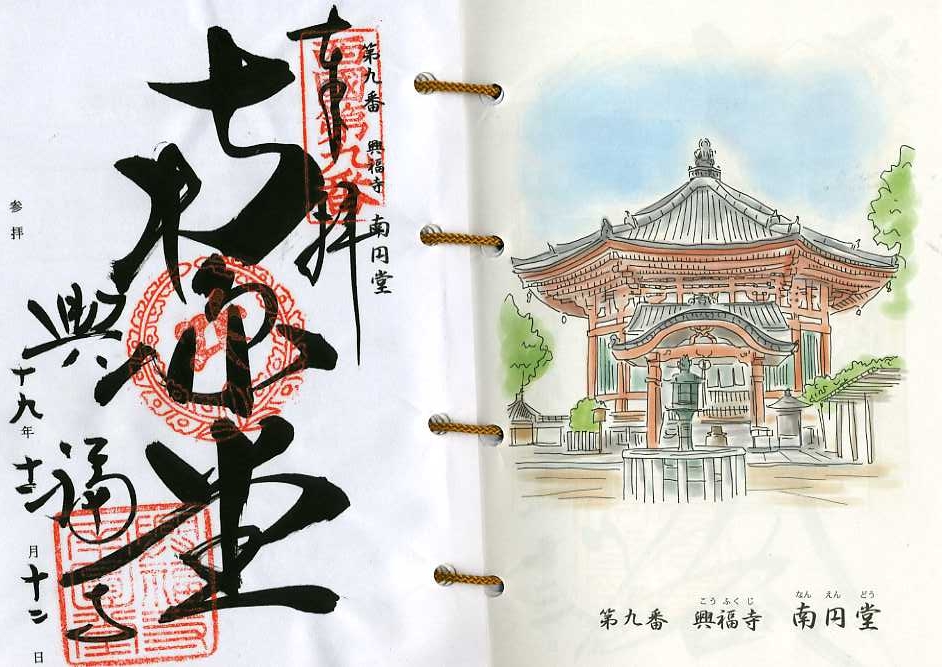 第九番 興福寺 南円堂
西國第九番
奉拝
南円堂
興福寺
参拝 十九年 十二月 十二日
こうふくじ なんえんどう
第九番 興福寺 南円堂